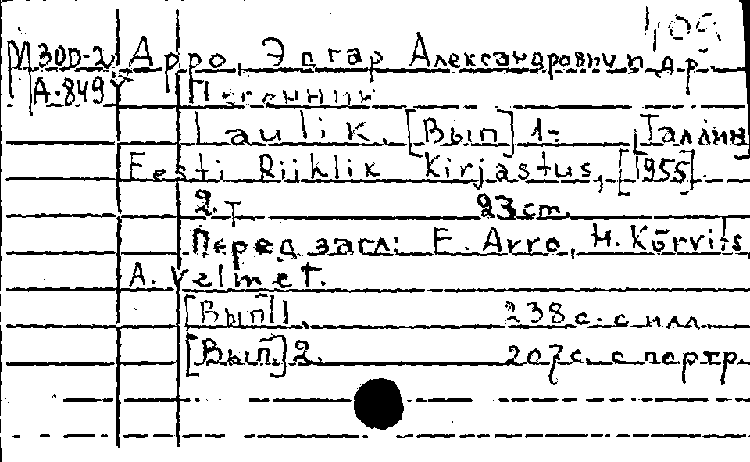 409
М30П-2 Арро, Эдгар Александрович и др.
А-849 Песенник
Laulik. [Вып] 1- [Таллин]
Eesti Riiklik Kirjastus, [1955]
2 т 23 cm.
Перед загл: E. Arro, H. Kõrvits,
A. Velmet.
[Вып] 1. 238 с. с илл.
[Вып.] 2. 207 с. с портр.